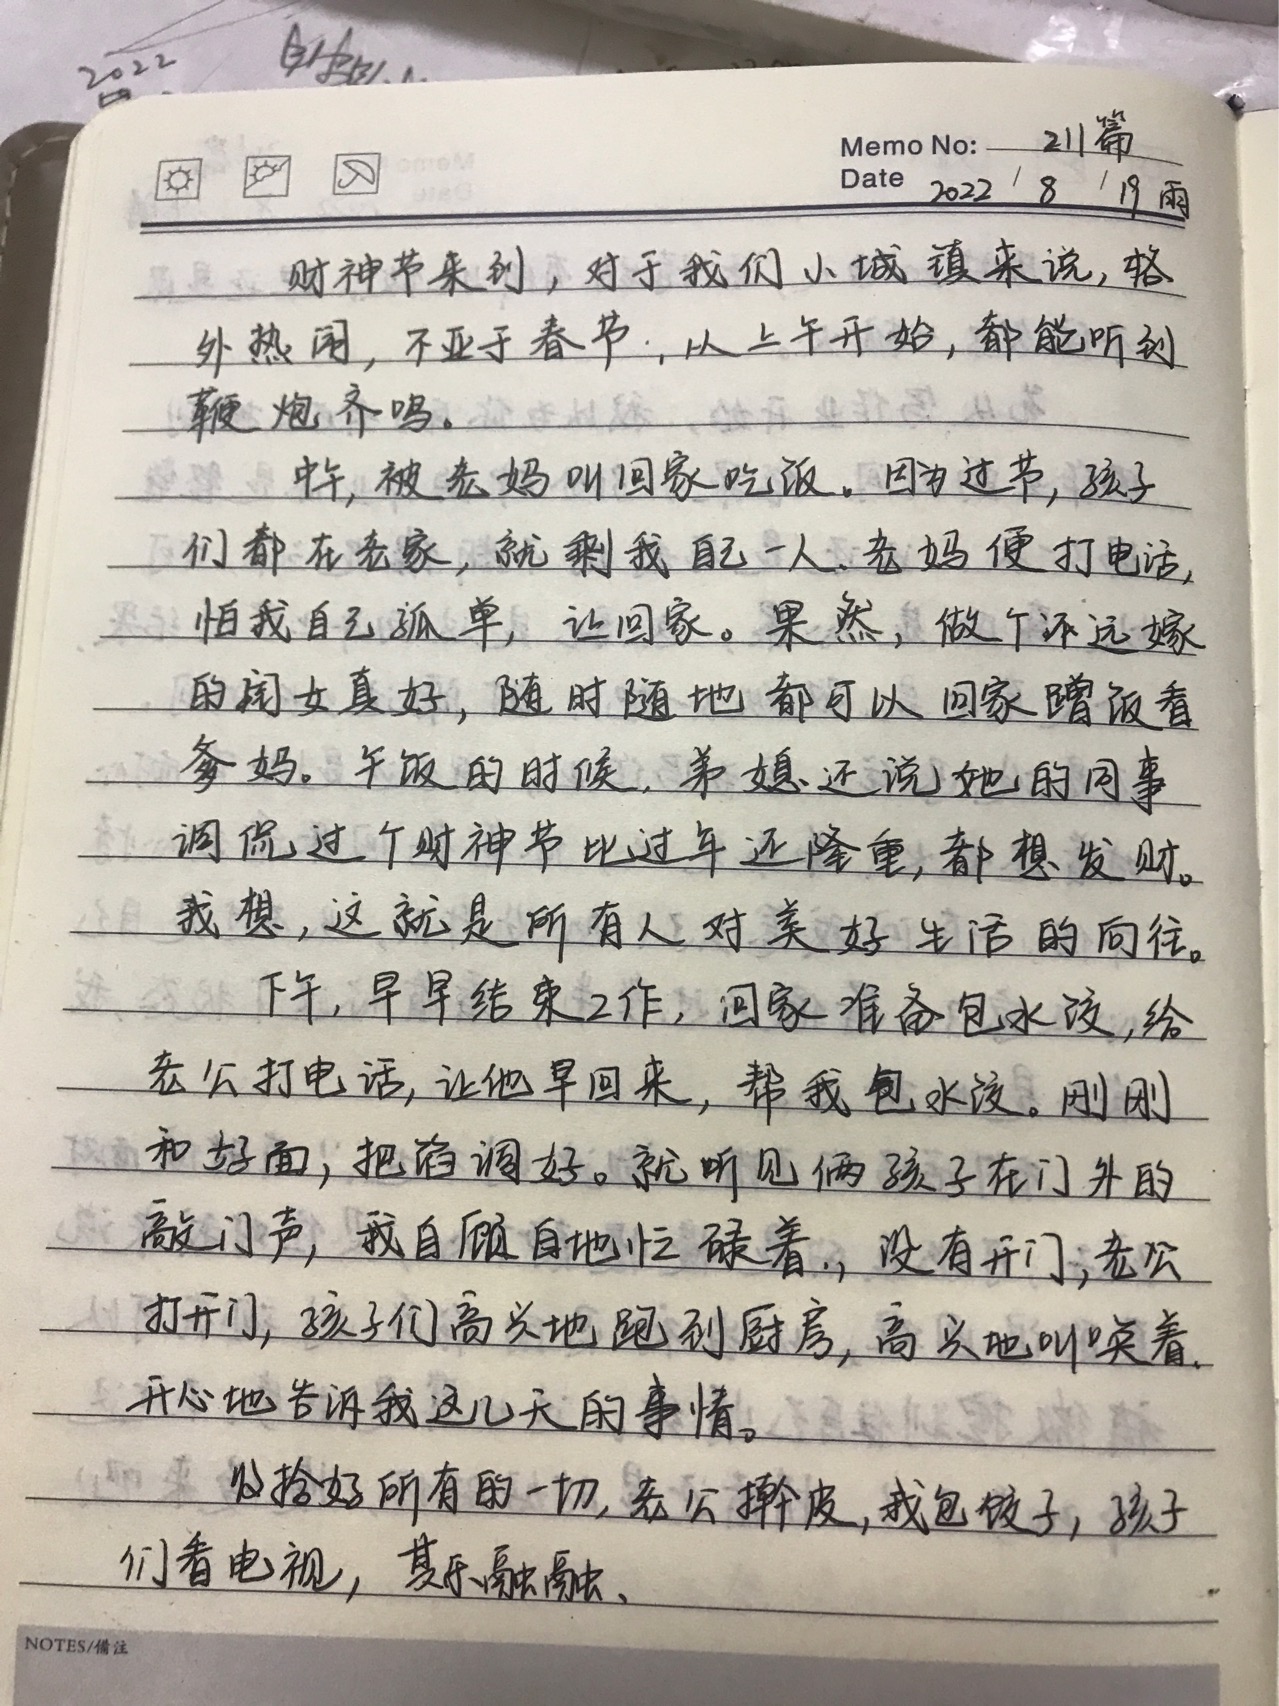 2022
Memo No: 211篇
Date 2022 / 8 / 19 雨
财神节来到，对于我们小城镇来说，格
外热闹，不亚于春节，从上午开始，都能听到
鞭炮齐鸣。
中午，被老妈叫回家吃饭。因为过节，孩子
们都在老家，就剩我自己一人、老妈便打电话，
怕我自己孤单，让回家。果然，做个不远嫁
的闺女真好，随时随地都可以回家蹭饭看
爹妈。午饭的时候，弟媳还说她的同事
调侃过个财神节比过年还隆重，都想发财。
我想，这就是所有人对美好生活的向往。
下午，早早结束工作，回家准备包水饺，给
老公打电话，让他早回来，帮我包水饺。刚刚
和好面，把馅调好。就听见俩孩子在门外的
敲门声，我自顾自地忙碌着，没有开门，老公
打开门，孩子们高兴地跑到厨房，高兴地叫唤着、
开心地告诉我这几天的事情。
收拾好所有的一切，老公擀皮，我包饺子，孩子
们看电视，其乐融融、
NOTES/備注